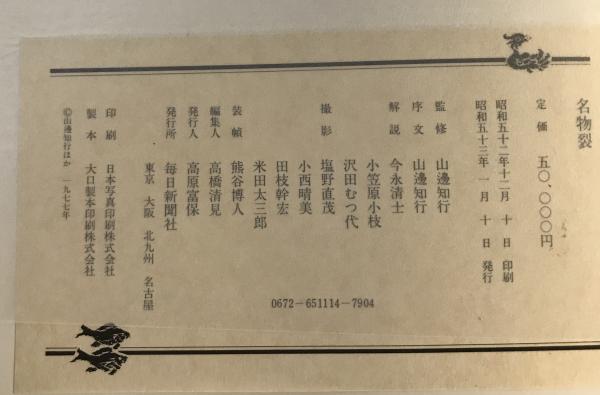 名物裂
定価 五〇、〇〇〇円
昭和五十二年十二月 十 日 印刷
昭和五十三年 一 月 十 日 発行
監修 山邊知行
序文 山邊知行
解説 今永清士
小笠原小枝
沢田むつ代
撮影 塩野直茂
小西晴美
田枝幹宏
米田太三郎
装幀 熊谷博人
編集人 高橋清見
発行人 高原富保
発行所 毎日新聞社
東京 大阪 北九州 名古屋
印刷 日本写真印刷株式会社
製本 大口製本印刷株式会社
©山邊知行ほか 一九七七年
0672-651114-7904